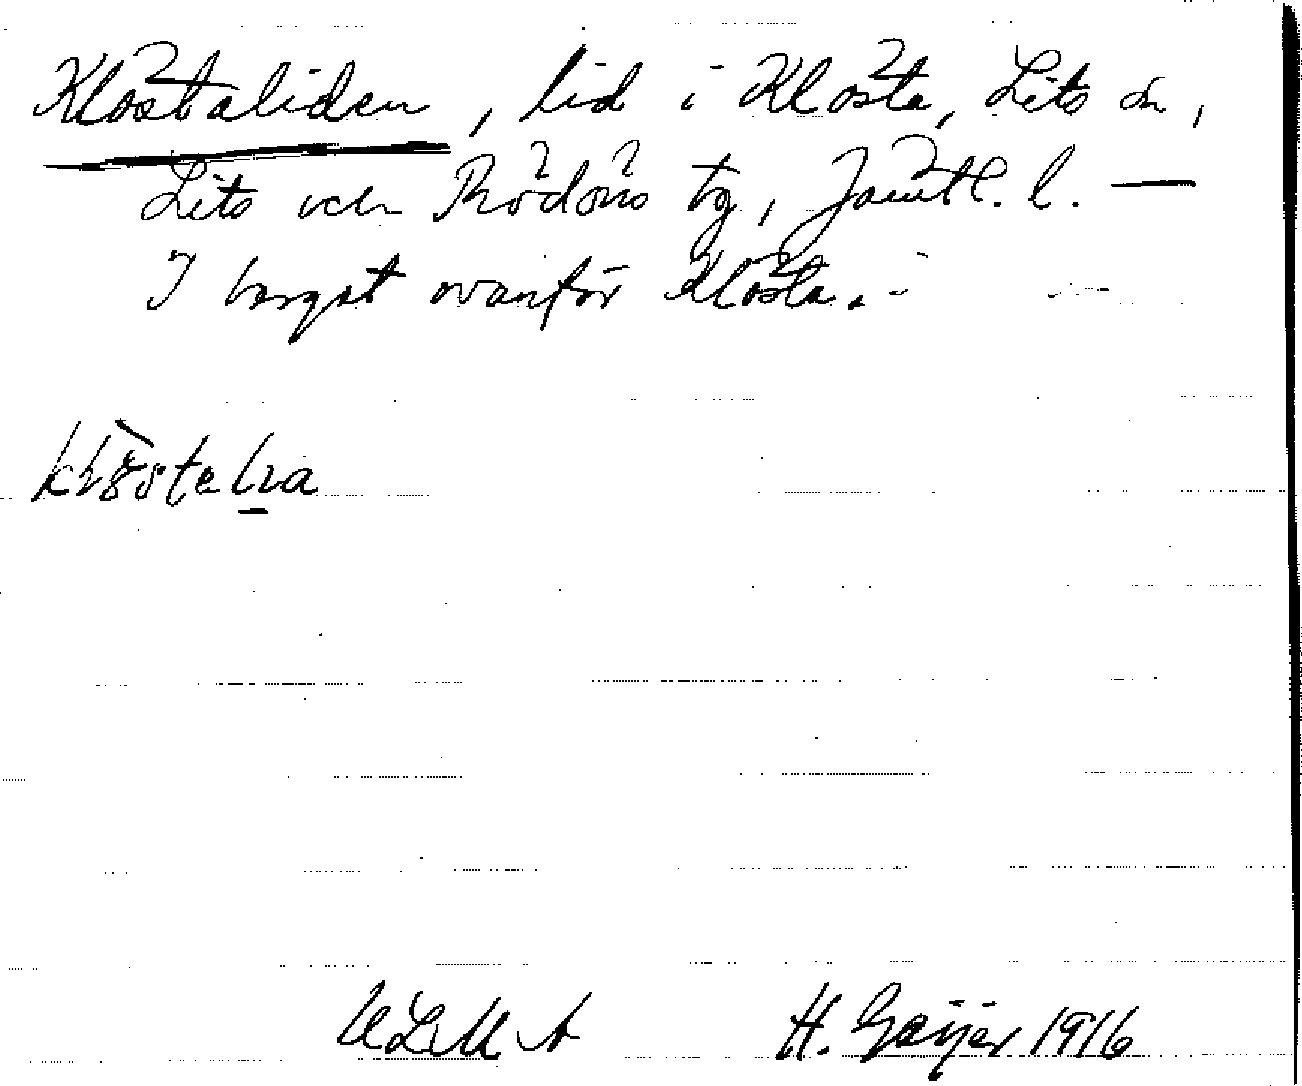 Klöstaliden, lid i Klösta, Lits sn,
Lits och Rödöns tg, Jämtl. l. —
I berget ovanför Klösta. –
ULMA H. Geijer 1916